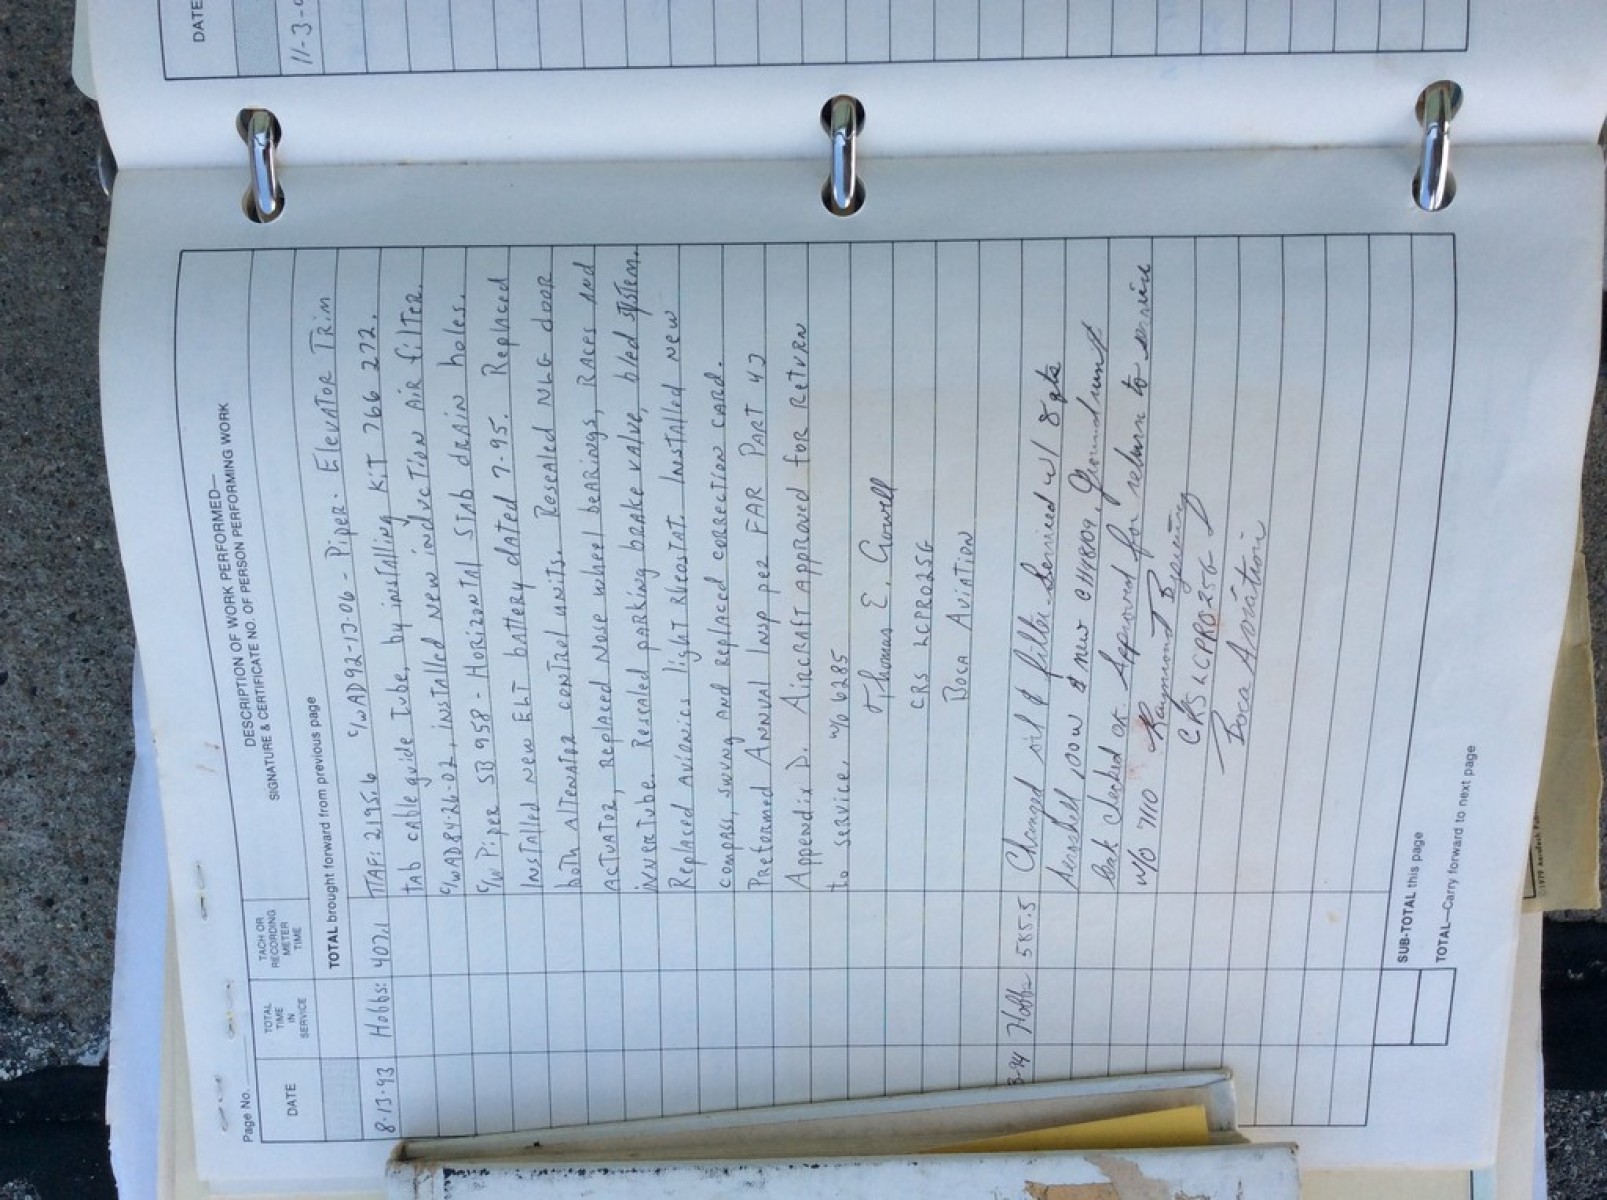 DATE
11-3-
Page No.
DATE
TOTAL TIME IN SERVICE
TACH OR RECORDING METER TIME
DESCRIPTION OF WORK PERFORMED—
SIGNATURE & CERTIFICATE NO. OF PERSON PERFORMING WORK
TOTAL brought forward from previous page
8-13-93 Hobbs: 407.1 TTAF: 2195.6 C/W AD92-13-06 - Piper - Elevator Trim
tab cable guide tube, by installing Kit 766 272.
C/W AD84-26-02, installed new induction air filter.
C/W Piper SB 958 - Horizontal stab drain holes.
Installed new ELT battery dated 7-95. Replaced
both Alternator control units. Resealed NLG door
actuator, replaced nose wheel bearings, races and
innertube. Resealed parking brake valve, bled system.
Replaced avionics light Rheostat. Installed new
compass, swung and replaced correction card.
Preformed Annual Insp per FAR Part 43
Appendix D. Aircraft approved for return
to service. W/O 6285
Thomas E. Crowell
CRS LCPR025G
Boca Aviation
-94 Hobbs 585.5 Changed oil & filter. Serviced w/ 8 qts
Aeroshell 100W & new CH48109. Ground run &
leak checked ok. Approved for return to service
W/O 7110 Raymond
CRS LCPR025G
Boca Aviation
SUB-TOTAL this page
TOTAL—Carry forward to next page